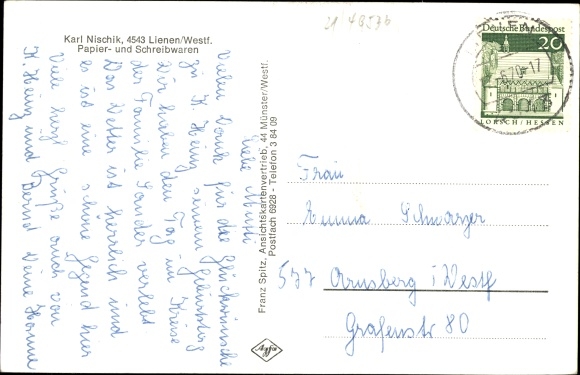 21 4857b
Karl Nischik, 4543 Lienen/Westf.
Papier- und Schreibwaren
Liebe Mutti
Vielen Dank für die Glückwünsche
zu K. Heinz seinem Geburtstag
Wir haben den Tag im Kreise
der Familie Sander verlebt
Das Wetter ist herrlich und
es ist eine schöne Gegend hier
Viele herzl. Grüße auch von
K. Heinz und Bernd Deine Hanne
Franz Spitz, Ansichtskartenvertrieb, 44 Münster/Westf.
Postfach 6928 - Telefon 3 84 09
Agfa
Deutsche Bundespost
20
70-17
LORSCH/HESSEN
Frau
Emma Schwarzer
577 Arnsberg i/Westf
Grafenstr 80